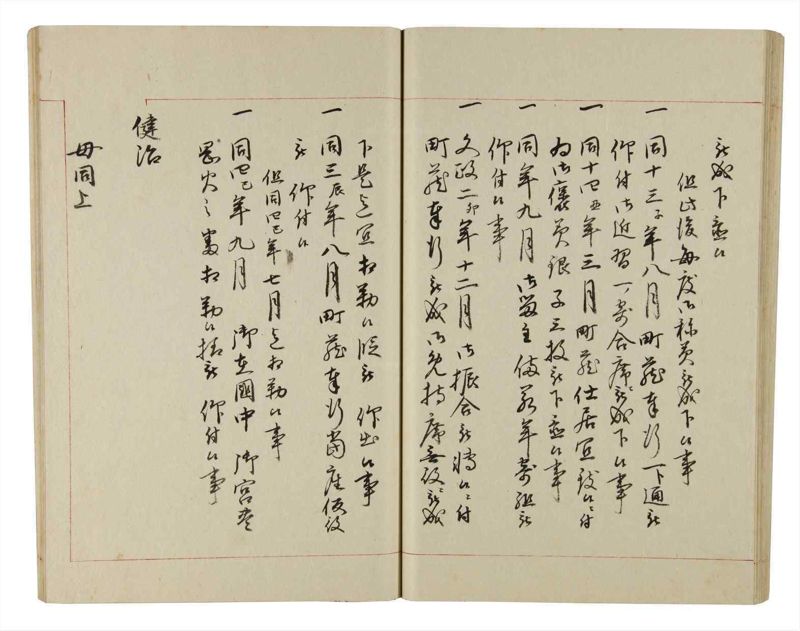 被成下置候
但此後毎度御称美被成下候事
一 同十三子年八月町蔵奉行一ト通被
仰付御近習一等合席被成下候事
一 同十四丑年三月町蔵仕居宜敷候ニ付
為御褒美銀子三枚被下置候事
一 同年九月御留主備若年寄組被
仰付候事
一 文政二卯年十二月御振合被 候ニ付
町蔵奉行被成御免持席無役被成
下是迄宜相勤候段被 仰出候事
一 同三辰年八月町蔵奉行当座仮役
被 仰付候
但同四巳年七月迄相勤候事
一 同四巳年九月 御在国中 御宮
火之番相勤候様被 仰付候事
健治
毋同上